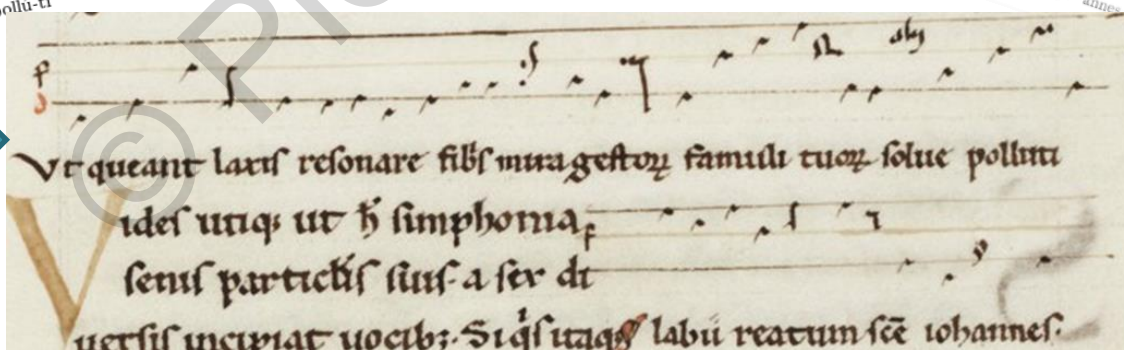 pollu-ti
annes
© Pri
Ut queant laxis resonare fibs mira gestoꝝ famuli tuoꝝ solue polluti
ides utiqꝫ ut h̄ simphonia
senis particlis suis· a sex di
uersis incipiat uocibꝫ· Si q̇s itaqꝫ labii reatum scē iohannes·